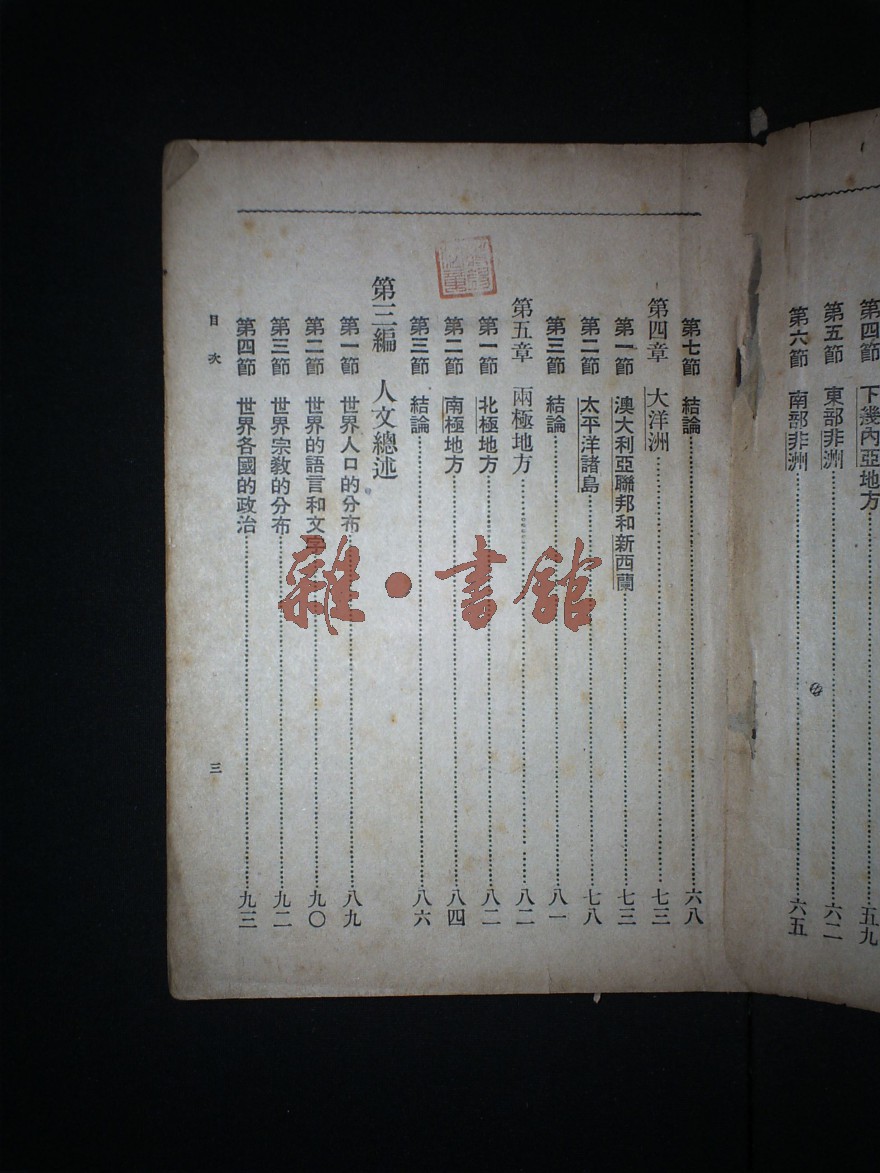 第四節 下幾內亞地方……五九
第五節 東部非洲……六二
第六節 南部非洲……六五
第七節 結論……六八
第四章 大洋洲……七三
第一節 澳大利亞聯邦和新西蘭……七三
第二節 太平洋諸島……七八
第三節 結論……八一
第五章 兩極地方……八二
第一節 北極地方……八二
第二節 南極地方……八四
第三節 結論……八六
第三編 人文總述
第一節 世界人口的分布……八九
第二節 世界的語言和文字……九〇
第三節 世界宗教的分布……九二
第四節 世界各國的政治……九三
目次
三
雜·書館